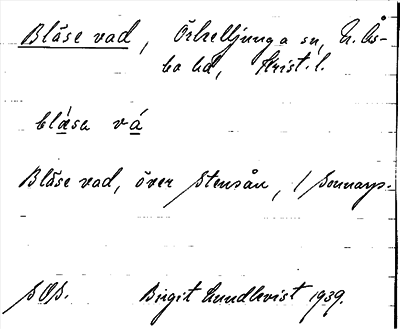 Blåse vad, Örkelljunga sn, N. Ås-
bo hd, Krist. l.
blæ̀sa vá
Blåse vad, över Stensån, i Sonnarp.
SOS. Birgit Lundkvist 1939.